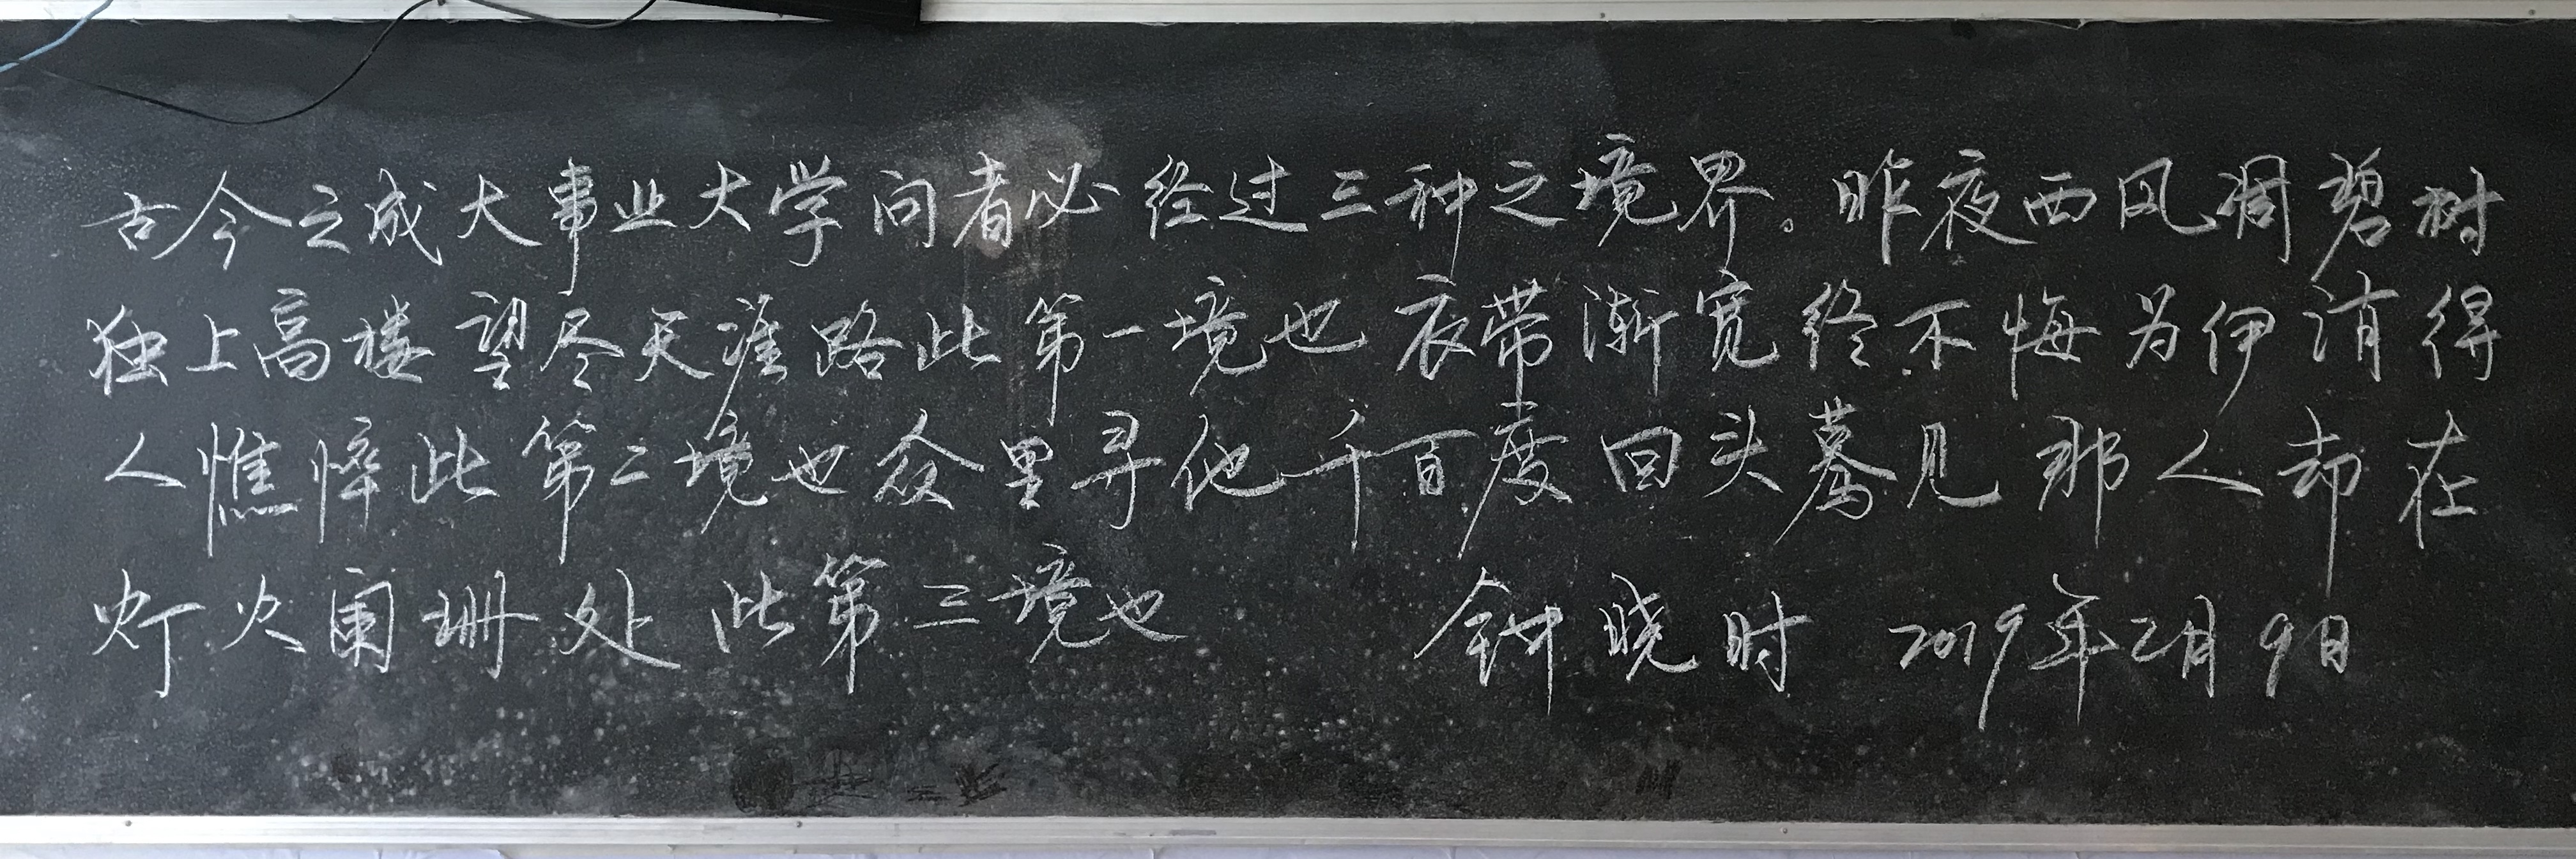 古今之成大事业大学问者必经过三种之境界。昨夜西风凋碧树
独上高楼望尽天涯路此第一境也衣带渐宽终不悔为伊消得
人憔悴此第二境也众里寻他千百度回头蓦见那人却在
灯火阑珊处此第三境也 钟晓时 2019年2月9日